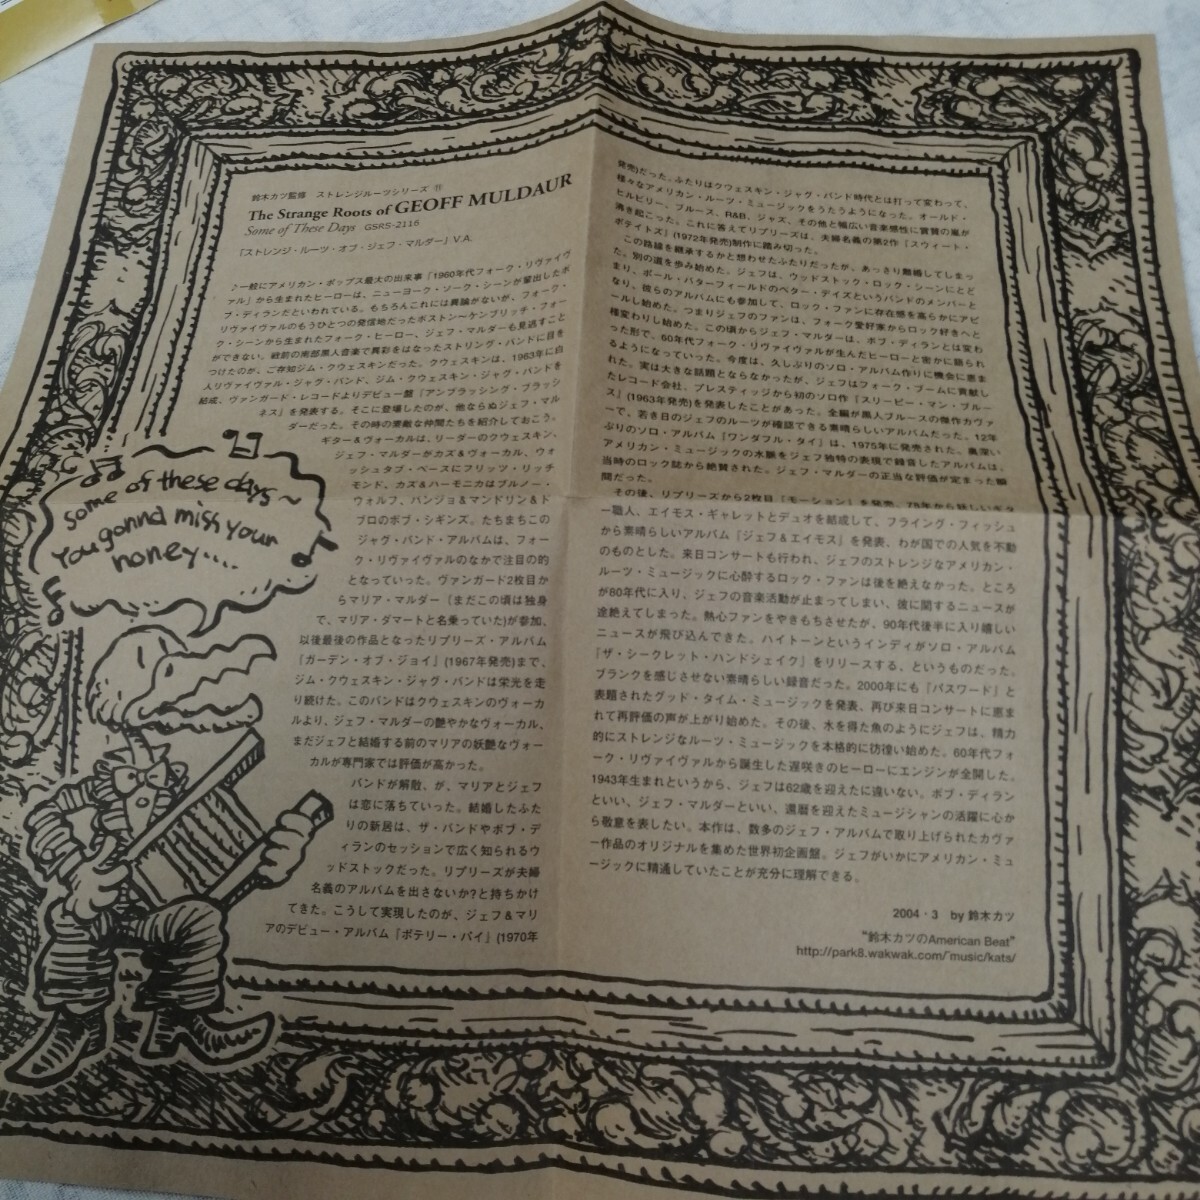 鈴木カツ監修　ストレンジルーツシリーズ ⑪
The Strange Roots of GEOFF MULDAUR
Some of These Days GSRS-2116
「ストレンジ・ルーツ・オブ・ジェフ・マルダー」V.A.
♪一般にアメリカン・ポップス最大の出来事「1960年代フォーク・リヴァイヴ
ァル」から生まれたヒーローは、ニューヨーク・ソーク・シーンが輩出したボ
ブ・ディランだといわれている。もちろんこれには異論がないが、フォーク・
リヴァイヴァルのもうひとつの発信地だったボストン〜ケンブリッチ・フォー
ク・シーンから生まれたフォーク・ヒーロー、ジェフ・マルダーも見逃すこと
ができない。戦前の南部黒人音楽で異彩をはなったストリング・バンドに目を
つけたのが、ご存知ジム・クウェスキンだった。クウェスキンは、1963年に白
人リヴァイヴァル・ジャグ・バンド、ジム・クウェスキン・ジャグ・バンドを
結成、ヴァンガード・レコードよりデビュー盤『アンブラッシング・ブラッシ
ネス』を発表する。そこに登場したのが、他ならぬジェフ・マル
ダーだった。その時の素敵な仲間たちを紹介しておこう。
ギター＆ヴォーカルは、リーダーのクウェスキン、
ジェフ・マルダーがカズ＆ヴォーカル、ウォ
ッシュタブ・ベースにフリッツ・リッチ
モンド、カズ＆ハーモニカはブルノー・
ウォルフ、バンジョ＆マンドリン＆ド
ブロのボブ・シギンズ。たちまちこの
ジャグ・バンド・アルバムは、フォー
ク・リヴァイヴァルのなかで注目の的
となっていった。ヴァンガード2枚目か
らマリア・マルダー（まだこの頃は独身
で、マリア・ダマートと名乗っていた)が参加、
以後最後の作品となったリプリーズ・アルバム
『ガーデン・オブ・ジョイ』(1967年発売)まで、
ジム・クウェスキン・ジャグ・バンドは栄光を走
り続けた。このバンドはクウェスキンのヴォーカ
ルより、ジェフ・マルダーの艶やかなヴォーカル、
まだジェフと結婚する前のマリアの妖艶なヴォー
カルが専門家では評価が高かった。
バンドが解散、が、マリアとジェフ
は恋に落ちていった。結婚したふた
りの新居は、ザ・バンドやボブ・デ
ィランのセッションで広く知られるウ
ッドストックだった。リプリーズが夫婦
名義のアルバムを出さないか?と持ちかけ
てきた。こうして実現したのが、ジェフ＆マリ
アのデビュー・アルバム『ポテリー・パイ』(1970年
発売)だった。ふたりはクウェスキン・ジャグ・バンド時代とは打って変わって、
様々なアメリカン・ルーツ・ミュージックをうたうようになった。オールド・
ヒルビリー、ブルース、R&B、ジャズ、その他と幅広い音楽感性に賞賛の嵐が
湧き起こった。これに答えてリプリーズは、夫婦名義の第2作『スウィート・
ポテイトズ』(1972年発売)制作に踏み切った。
この路線を継承するかと想わせたふたりだったが、あっさり離婚してしまっ
た。別の道を歩み始めた。ジェフは、ウッドストック・ロック・シーンにとど
まり、ポール・バターフィールドのベター・デイズというバンドのメンバーと
なり、彼らのアルバムにも参加して、ロック・ファンに存在感を高らかにアピ
ールし始めた。つまりジェフのファンは、フォーク愛好家からロック好きへと
種変わりし始めた。この頃からジェフ・マルダーは、ボブ・ディランとは変わ
った形で、60年代フォーク・リヴァイヴァルが生んだヒーローと密かに語られ
るようになっていった。今度は、久しぶりのソロ・アルバム作りに機会に恵ま
れた。実は大きな話題とならなかったが、ジェフはフォーク・ブームに貢献し
たレコード会社、プレスティッジから初のソロ作『スリーピー・マン・ブルー
ス』(1963年発売)を発表したことがあった。全編が黒人ブルースの傑作カヴァ
ーで、若き日のジェフのルーツが確認できる素晴らしいアルバムだった。12年
ぶりのソロ・アルバム『ワンダフル・タイ』は、1975年に発売された。奥深い
アメリカン・ミュージックの水脈をジェフ独特の表現で録音したアルバムは、
当時のロック誌から絶賛された。ジェフ・マルダーの正当な評価が定まった瞬
間だった。
その後、リプリーズから2枚目『モーション』を発売、78年から妖しいギタ
ー職人、エイモス・ギャレットとデュオを結成して、フライング・フィッシュ
から素晴らしいアルバム『ジェフ＆エイモス』を発表、わが国での人気を不動
のものとした。来日コンサートも行われ、ジェフのストレンジなアメリカン・
ルーツ・ミュージックに心酔するロック・ファンは後を絶えなかった。ところ
が80年代に入り、ジェフの音楽活動が止まってしまい、彼に関するニュースが
途絶えてしまった。熱心ファンをやきもちさせたが、90年代後半に入り嬉しい
ニュースが飛び込んできた。ハイトーンというインディがソロ・アルバム
『ザ・シークレット・ハンドシェイク』をリリースする、というものだった。
ブランクを感じさせない素晴らしい録音だった。2000年にも『パスワード』と
表題されたグッド・タイム・ミュージックを発表、再び来日コンサートに恵ま
れて再評価の声が上がり始めた。その後、水を得た魚のようにジェフは、精力
的にストレンジなルーツ・ミュージックを本格的に彷徨い始めた。60年代フォ
ーク・リヴァイヴァルから誕生した遅咲きのヒーローにエンジンが全開した。
1943年生まれというから、ジェフは62歳を迎えたに違いない。ボブ・ディラン
といい、ジェフ・マルダーといい、還暦を迎えたミュージシャンの活躍に心か
ら敬意を表したい。本作は、数多のジェフ・アルバムで取り上げられたカヴァ
ー作品のオリジナルを集めた世界初企画盤。ジェフがいかにアメリカン・ミュ
ージックに精通していたことが充分に理解できる。
2004・3　by 鈴木カツ
"鈴木カツのAmerican Beat"
http://park8.wakwak.com/~music/kats/
some of these days~
You gonna miss your
honey....